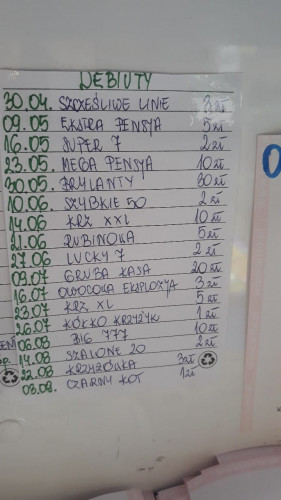 DEBIUTY
30.04. SZCZĘŚLIWE LINIE 3 zł
09.05 EKSTRA PENSJA 5 zł
16.05 SUPER 7 2 zł
23.05 MEGA PENSJA 10 zł
30.05 BRYLANTY 30 zł
10.06 SZYBKIE 50 2 zł
14.06 KRZ XXL 10 zł
21.06 RUBINOWA 5 zł
27.06 LUCKY 7 2 zł
09.07 GRUBA KASA 20 zł
16.07 OWOCOWA EKSPLOZJA 3 zł
23.07 KRZ XL 5 zł
26.07 KÓŁKO KRZYŻYK 1 zł
06.08 BIG 777 10 zł
14.08 SZALONE 20 2 zł
22.08 KRZYŻÓWKA 3 zł
03.09. CZARNY KOT 1 zł